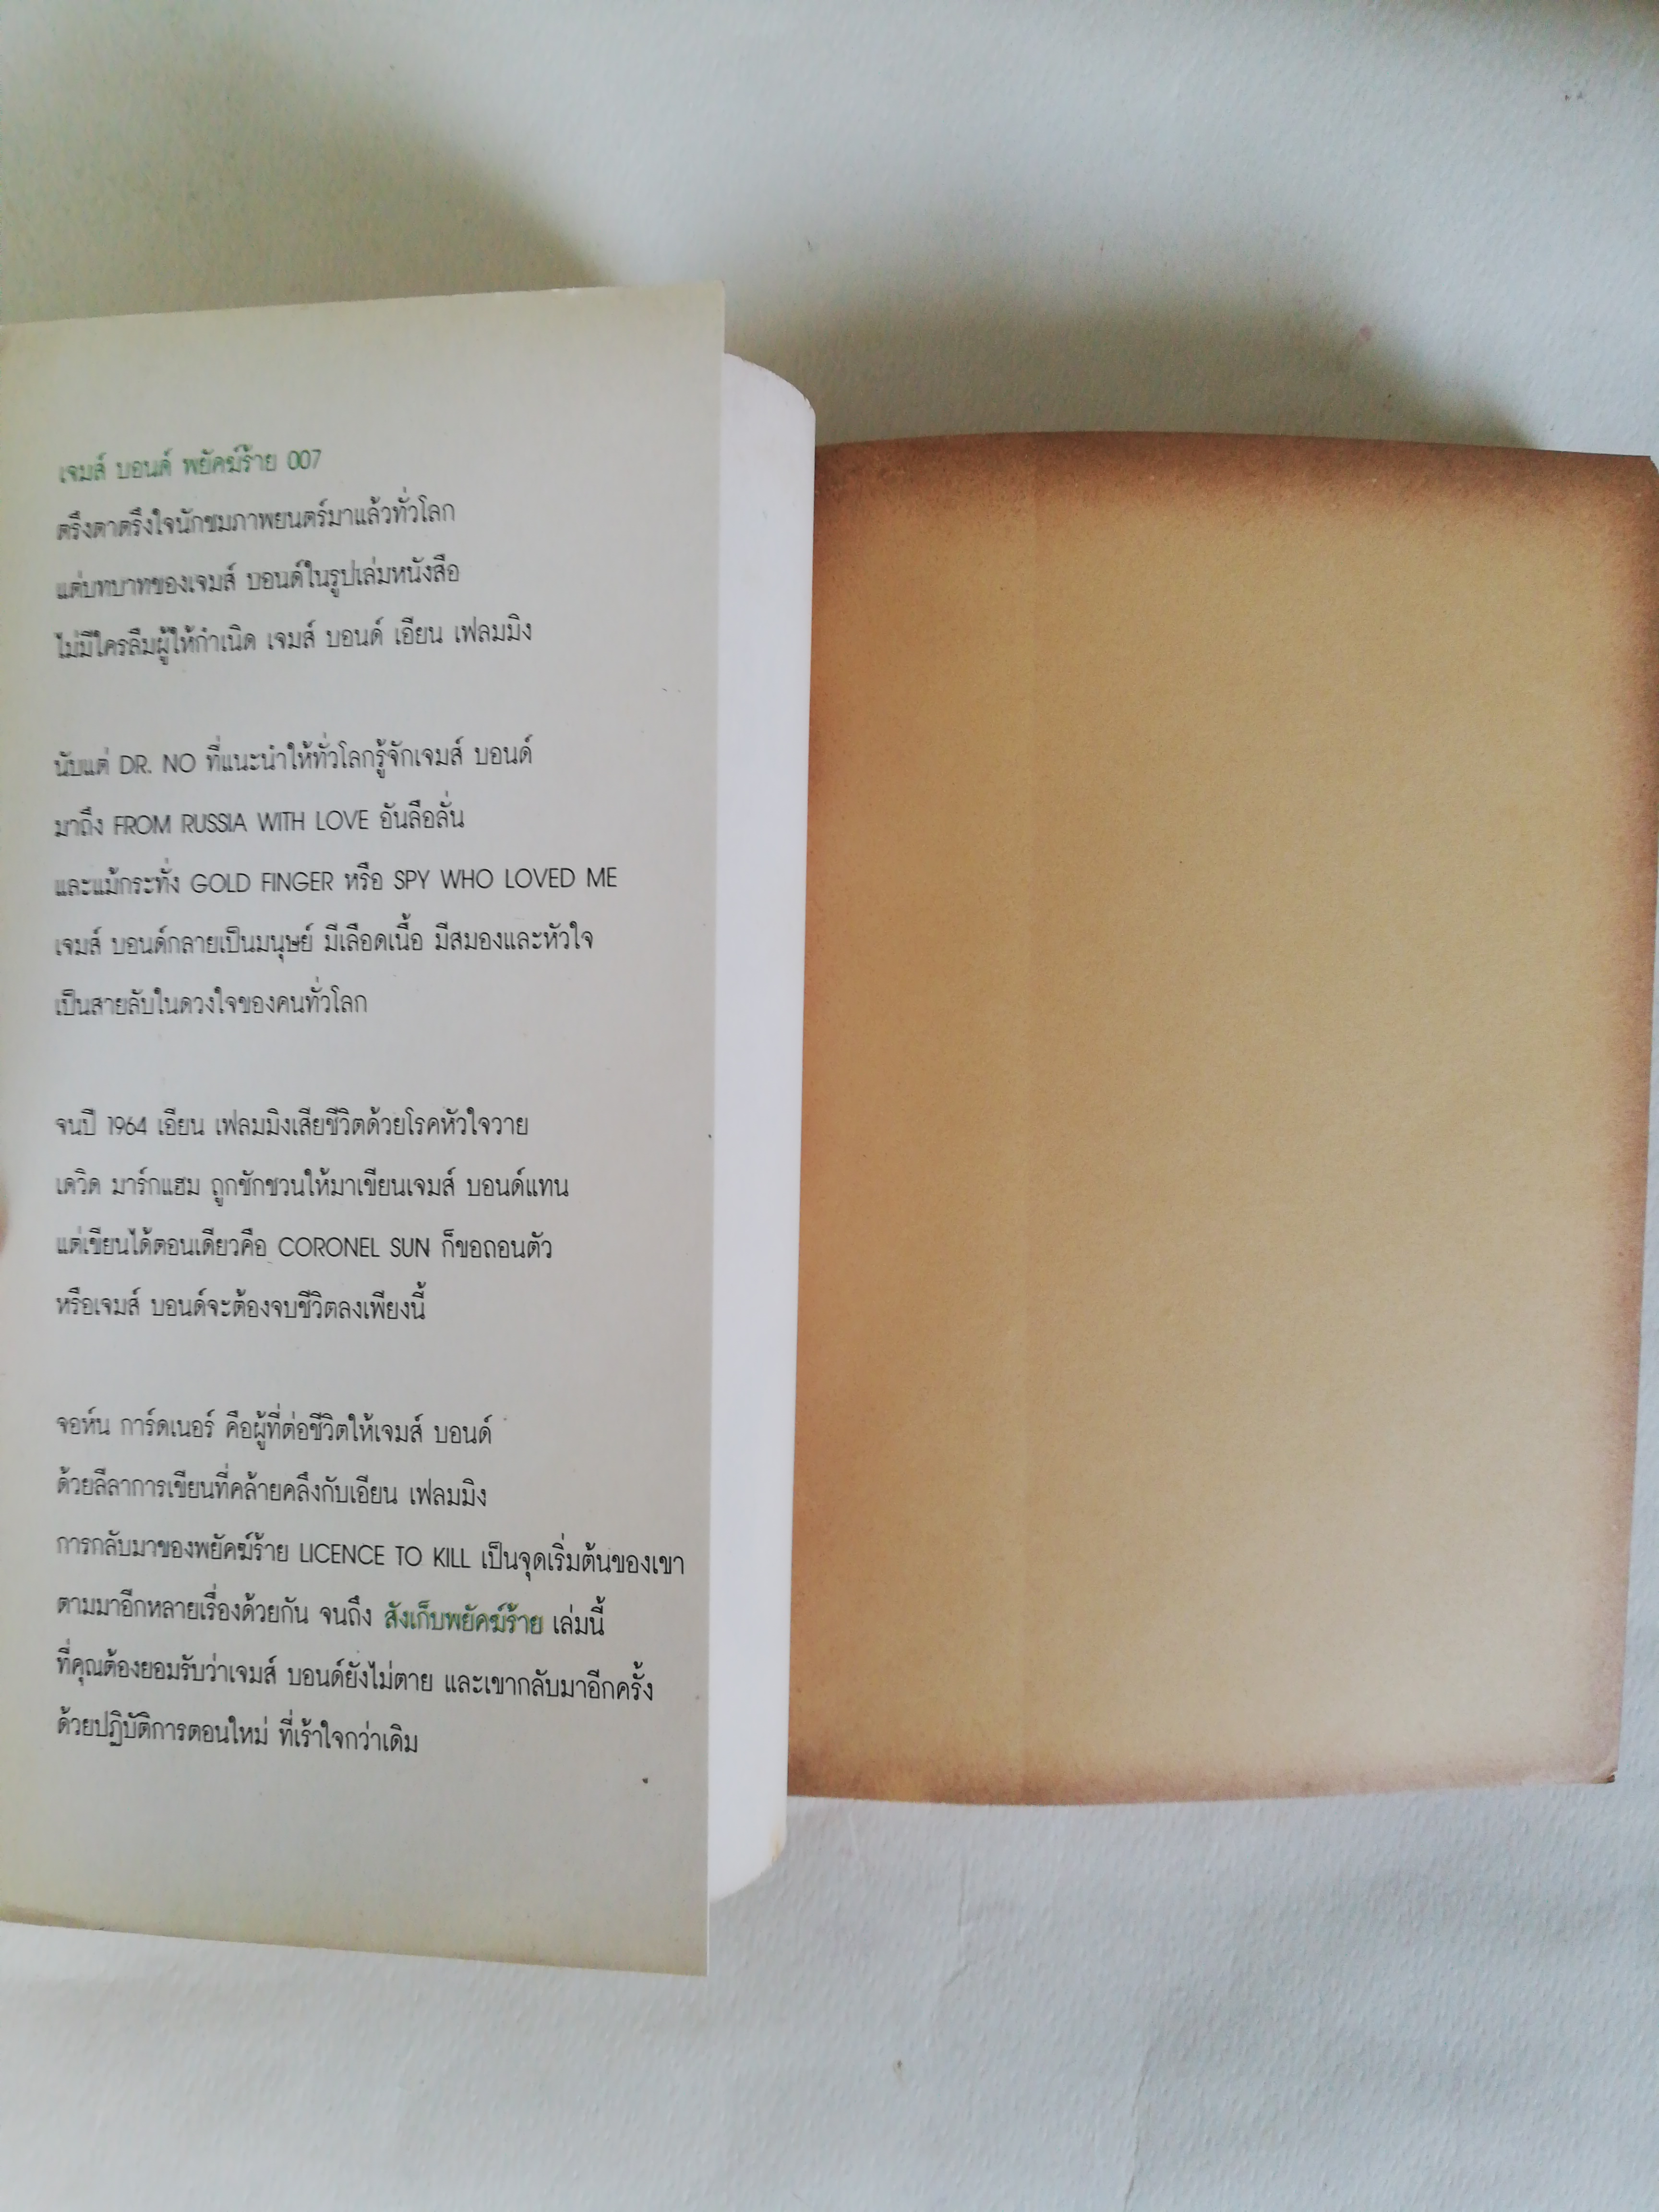 เจมส์ บอนด์ พยัคฆ์ร้าย 007
ตรึงตาตรึงใจนักชมภาพยนตร์มาแล้วทั่วโลก
แต่บทบาทของเจมส์ บอนด์ในรูปเล่มหนังสือ
ไม่มีใครลืมผู้ให้กำเนิด เจมส์ บอนด์ เอียน เฟลมมิง
นับแต่ DR. NO ที่แนะนำให้ทั่วโลกรู้จักเจมส์ บอนด์
มาถึง FROM RUSSIA WITH LOVE อันลือลั่น
และแม้กระทั่ง GOLD FINGER หรือ SPY WHO LOVED ME
เจมส์ บอนด์กลายเป็นมนุษย์ มีเลือดเนื้อ มีสมองและหัวใจ
เป็นสายลับในดวงใจของคนทั่วโลก
จนปี 1964 เอียน เฟลมมิงเสียชีวิตด้วยโรคหัวใจวาย
เดวิด มาร์กแฮม ถูกชักชวนให้มาเขียนเจมส์ บอนด์แทน
แต่เขียนได้ตอนเดียวคือ CORONEL SUN ก็ขอถอนตัว
หรือเจมส์ บอนด์จะต้องจบชีวิตลงเพียงนี้
จอห์น การ์ดเนอร์ คือผู้ที่ต่อชีวิตให้เจมส์ บอนด์
ด้วยลีลาการเขียนที่คล้ายคลึงกับเอียน เฟลมมิง
การกลับมาของพยัคฆ์ร้าย LICENCE TO KILL เป็นจุดเริ่มต้นของเขา
ตามมาอีกหลายเรื่องด้วยกัน จนถึง สังเก็บพยัคฆ์ร้าย เล่มนี้
ที่คุณต้องยอมรับว่าเจมส์ บอนด์ยังไม่ตาย และเขากลับมาอีกครั้ง
ด้วยปฏิบัติการตอนใหม่ ที่เร้าใจกว่าเดิม